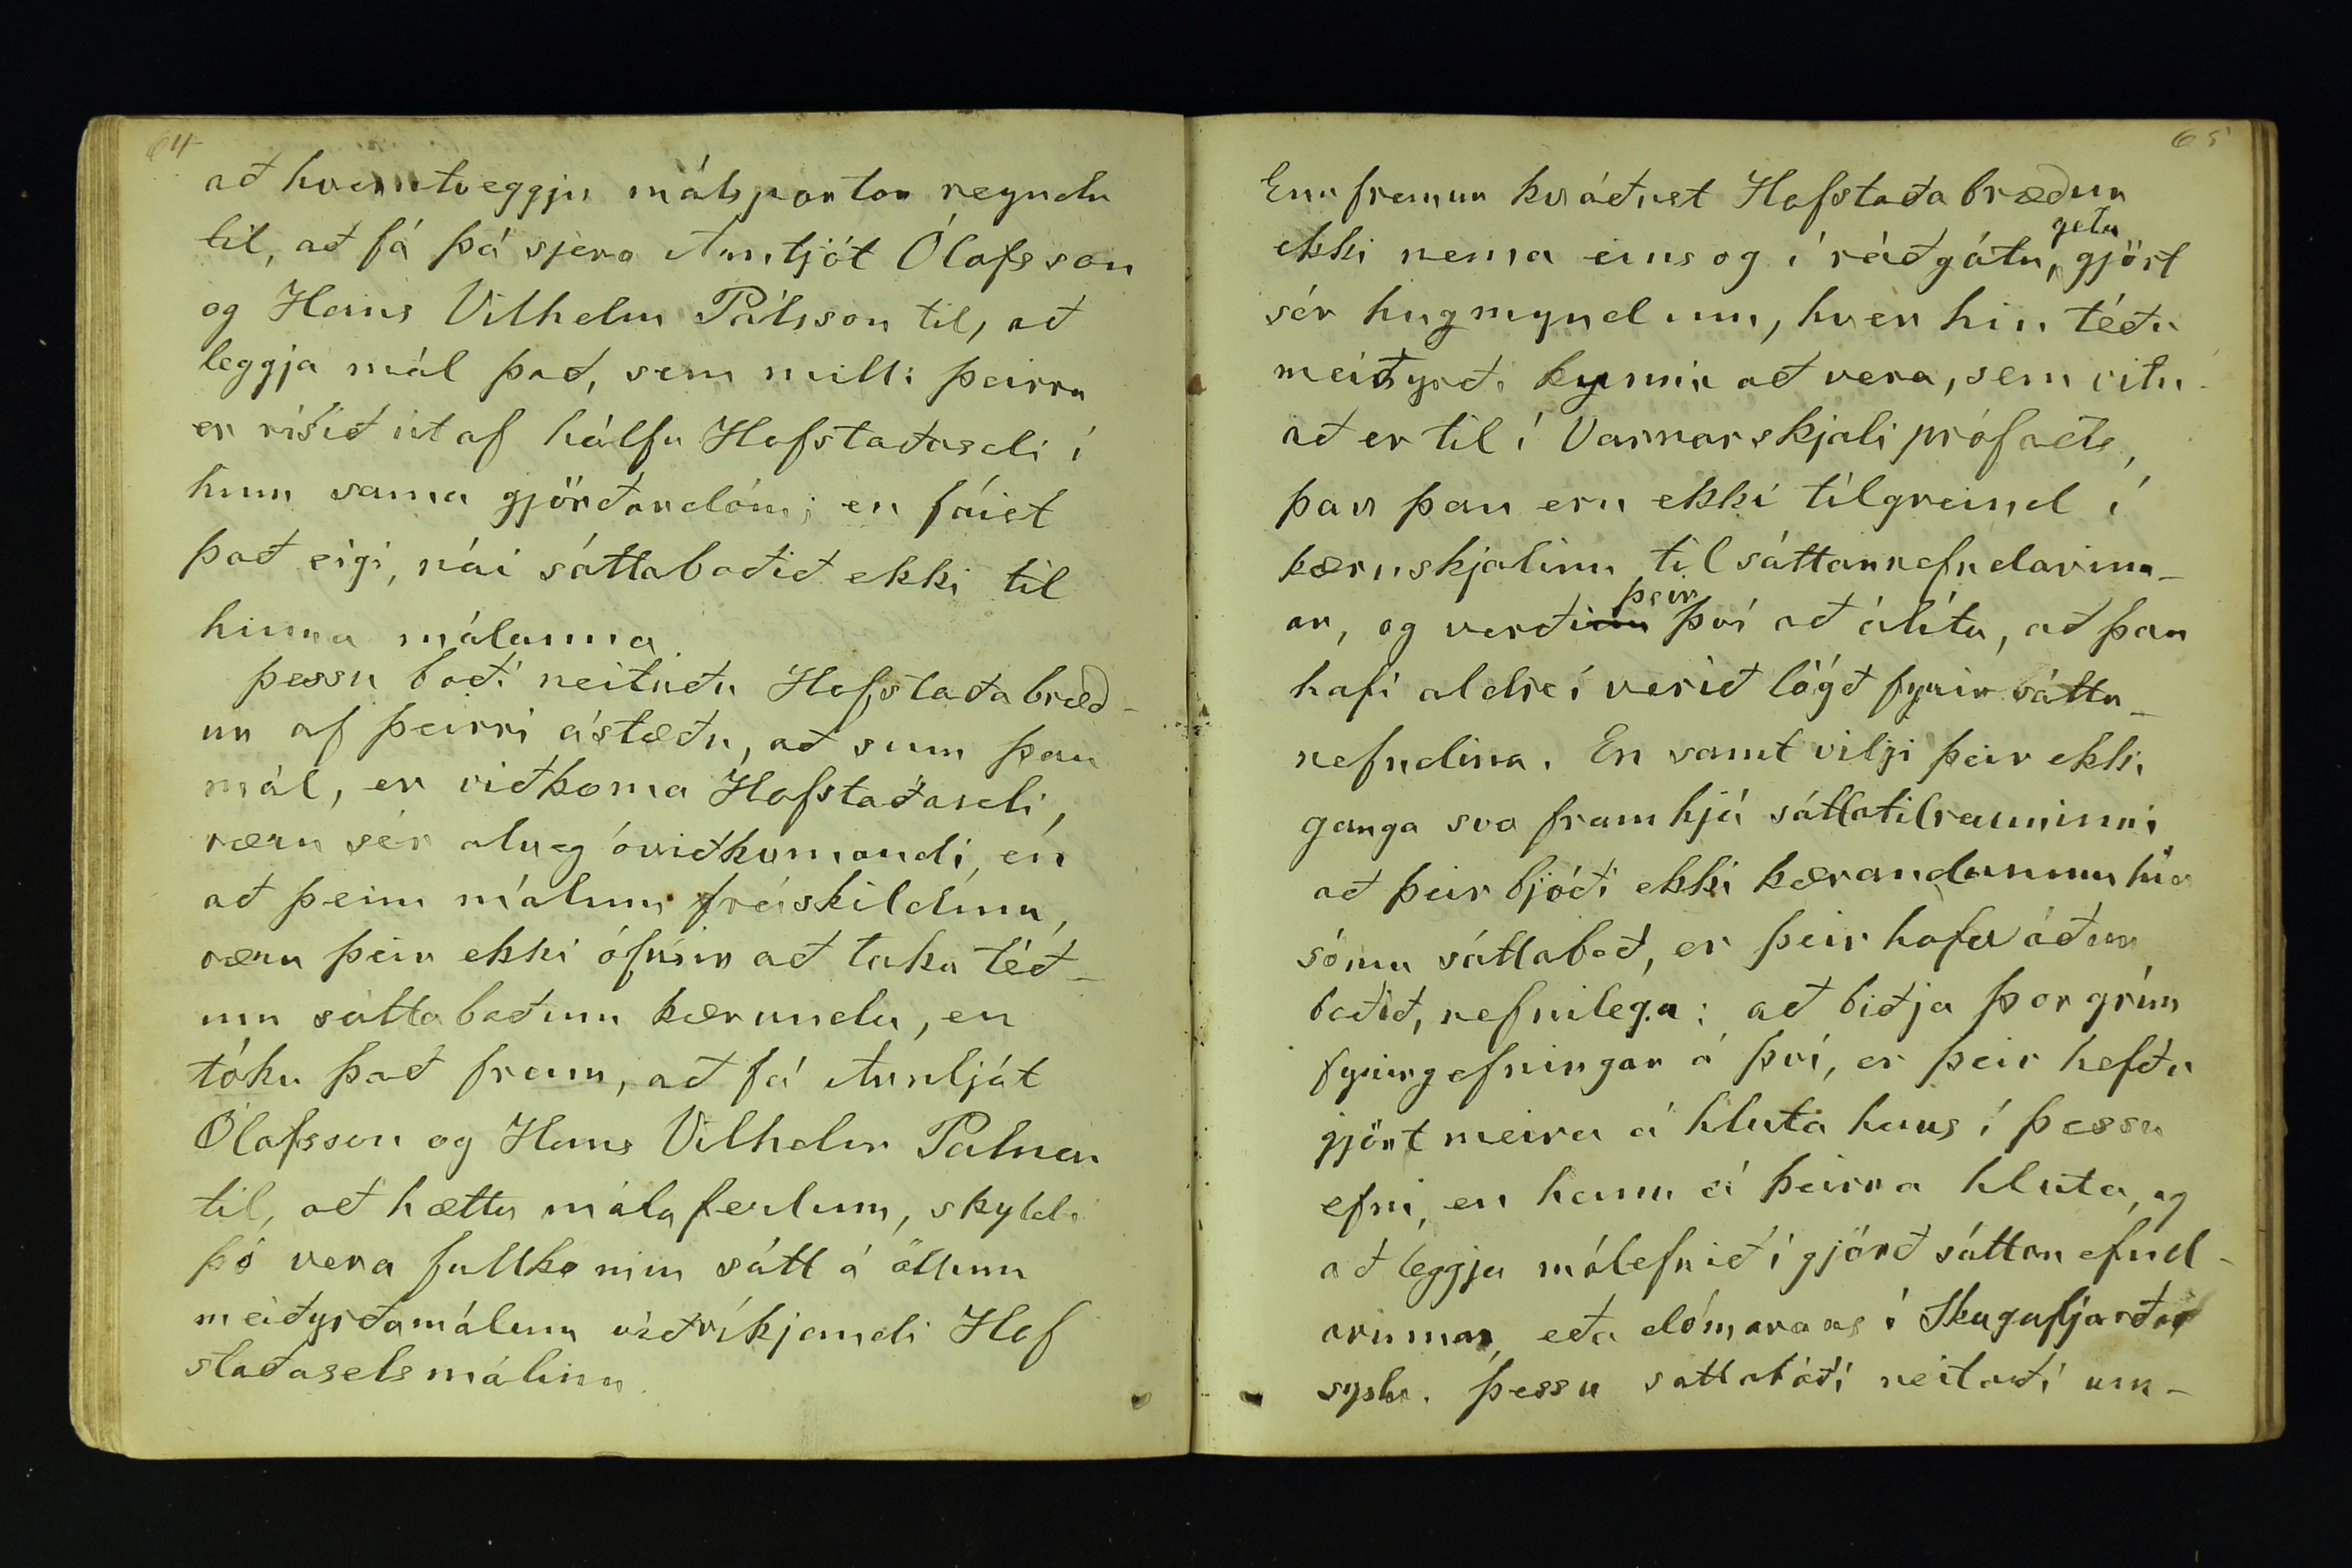 64
að hverutveggju málspartar reyndu
til, að fá þá sjera Arnljót Ólafsson
og Hans Vilhelm Pálsson til, að
leggja mál það, sem milli þeirra
er risið út af hálfu Hofstaðaseli í
hinn sama gjörðardóm; en fáist
það eigi, nái sáttaboðið ekki til
hinna málanna.
Þessu boði neituðu Hofstaðabræð-
ur af þeirri ástæðu, að sum þau
mál, er viðkoma Hofstaðaseli,
væru sér alveg óviðkomandi, en
að þeim málum fráskildum,
væru þeir ekki ófúsir að taka téð-
um sáttaboðum kærunda, en
tóku það fram, að fá Arnljót
Ólafsson og Hans Vilhelm Pálsson
til, að hætta málaferlum, skyldi
þó vera fullkomin sátt á öllum
meiðyrðamálum viðvíkjandi Hof
staðaselsmálinu.
65
Ennfremur kváðust Hofstaðabræður
ekki nema eins og í ráðgátu, geta gjört
sér hugmynd um, hver hin téðu
meiðyrði kynnu að vera, sem vitn-
að er til í Varnarskjali prófasts,
þar þau eru ekki tilgreind í
kæruskjalinu til sáttanefndarinn-
ar, og verði þeir því að álíta, að þau
hafi aldrei verið lögð fyrir sátta-
nefndina. En samt vilji þeir ekki
ganga svo framhjá sáttatilrauninni
að þeir bjóði ekki kærandanum hin
sömu sáttaboð, er þeir hafa áður
boðið, nefnilega: að biðja Þorgrím
fyrirgefningar á því, er þeir hefðu
gjört meira á hluta hans í þessu
efni, en hann á þeirra hluta, og
að leggja málefnið í gjörð sáttanefnd-
arinnar, eða dómarans í Skagafjarðar
syslu. Þessu sáttaboði neitaði um-